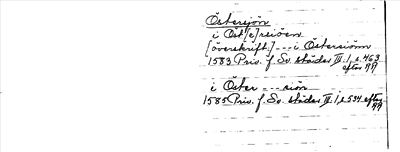 Östersjön
i Öst[e]rsiöen
[överskrift] --- i Östersiönn
1583 Priv. f. Sv. städer III. 1, s. 463
efter
i Öster --- siön
1585 Priv. f. Sv. städer III. 1, s. 534 efter